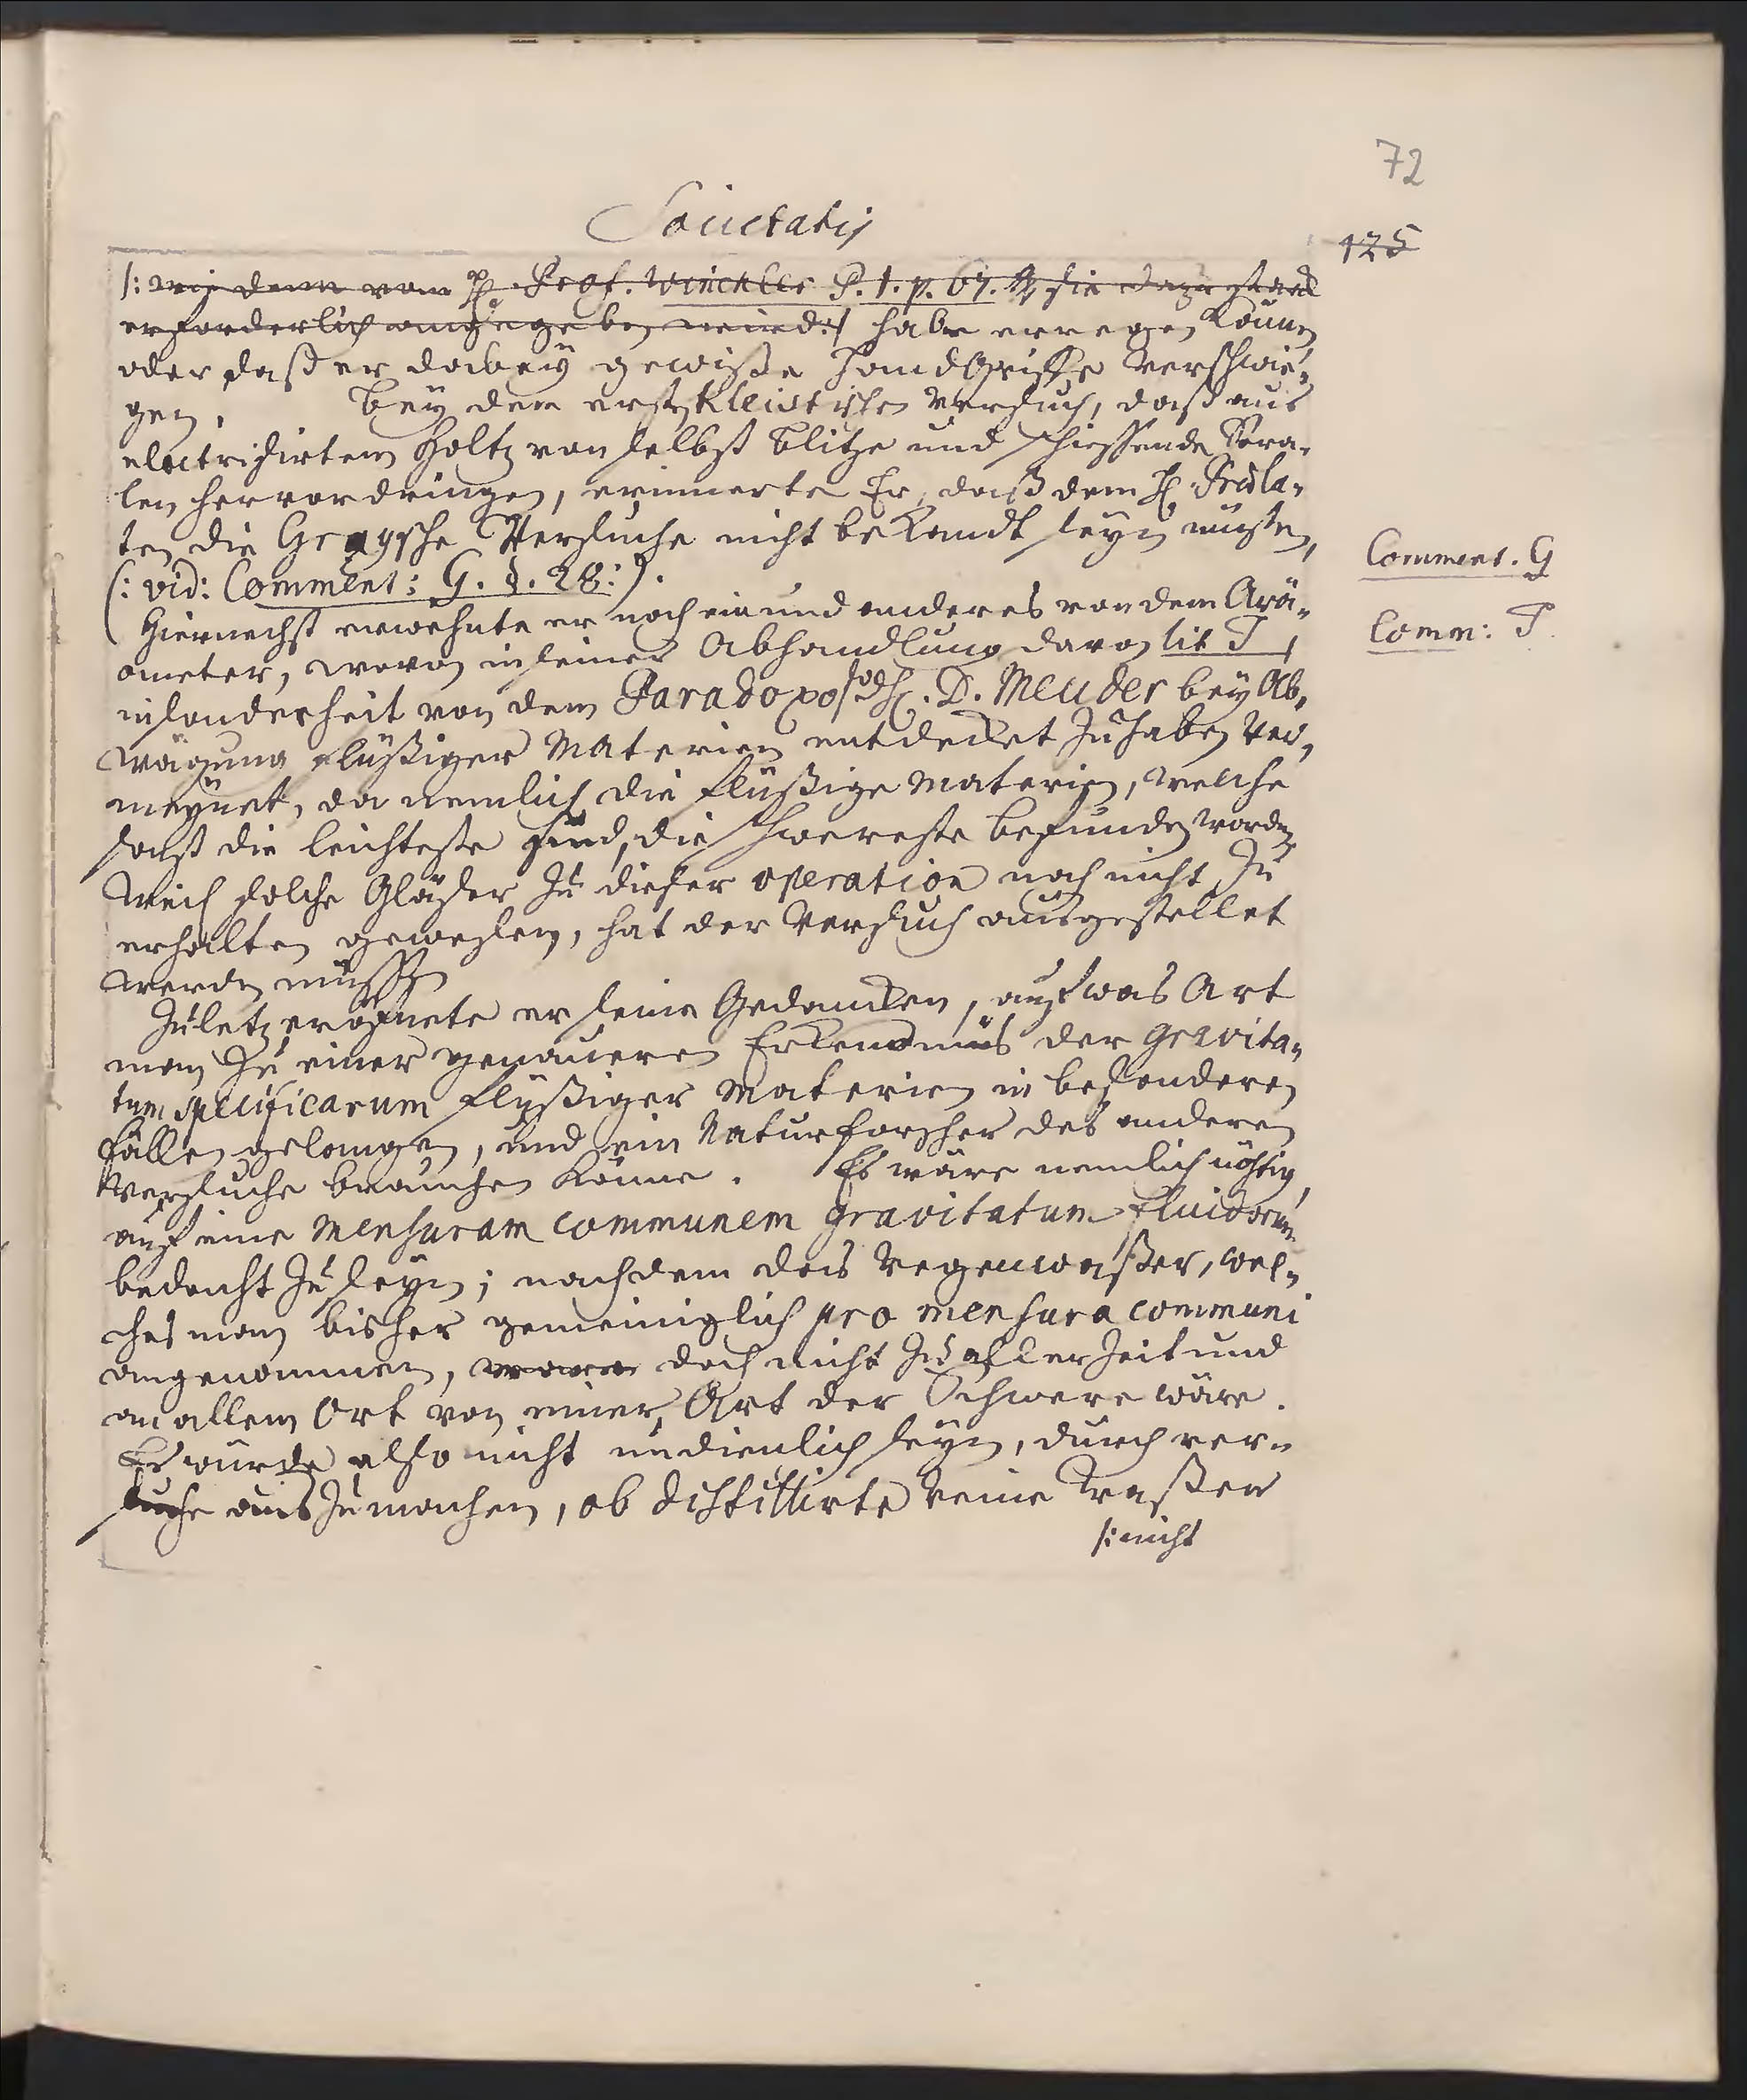 72
Societatis
125
/: wie denn vom H. Prof. Winckler P. 1. p. 67. sie dazu stark
erforderlich angegeben wird :/ habe erregen können
oder daß er dabey gewiße Handgriffe verschwie-
gen. Bey dem ersten Kleistischen Versuch, daß aus
electrisirtem Holtz von selbst Blitze und schiessende Stra-
len hervordringen, erinnerte Er, daß dem H. Præla-
ten die Graysche Versuche nicht bekandt seyn müsten,
(: vid: Comment: G. §. 28 :).
Comment. G
Hiernechst erwehnte er noch ein und anderes von dem Aræ-
Comm: T.
ometer, wovon in seiner Abhandlung davon lit T,
insonderheit von dem Paradoxo, so H. D. Meuder bey Ab-
wägung flüßiger Materien entdecket zu haben ver-
meynet, da nemlich die flüßige Materien, welche
sonst die leichteste sind, die schwereste befunden worden
Weil solche Gläser zu dieser operation noch nicht zu
erhalten gewesen, hat der Versuch ausgestellet
werden müssen
Zuletz eröfnete er seine Gedancken, auf was Art
man zu einer genauern Erkendnüs der gravita-
tum specificarum flüßiger Materien in besonderen
Fällen gelangen, und ein Naturforscher des anderen
Versuche brauchen könne. Es wäre nemlich nöthig,
auf eine mensuram communem gravitatum fluidorum
bedacht zu seyn; nachdem das Regenwaßer, wel-
ches man bisher gemeiniglich pro mensura communi
angenommen, doch nicht zu aller Zeit und
an allem Ort von einer Art der Schwere wäre.
Es würde also nicht undienlich seyn, durch ver-
suche aus zu machen, ob distillirte reine Waßer
/: nicht